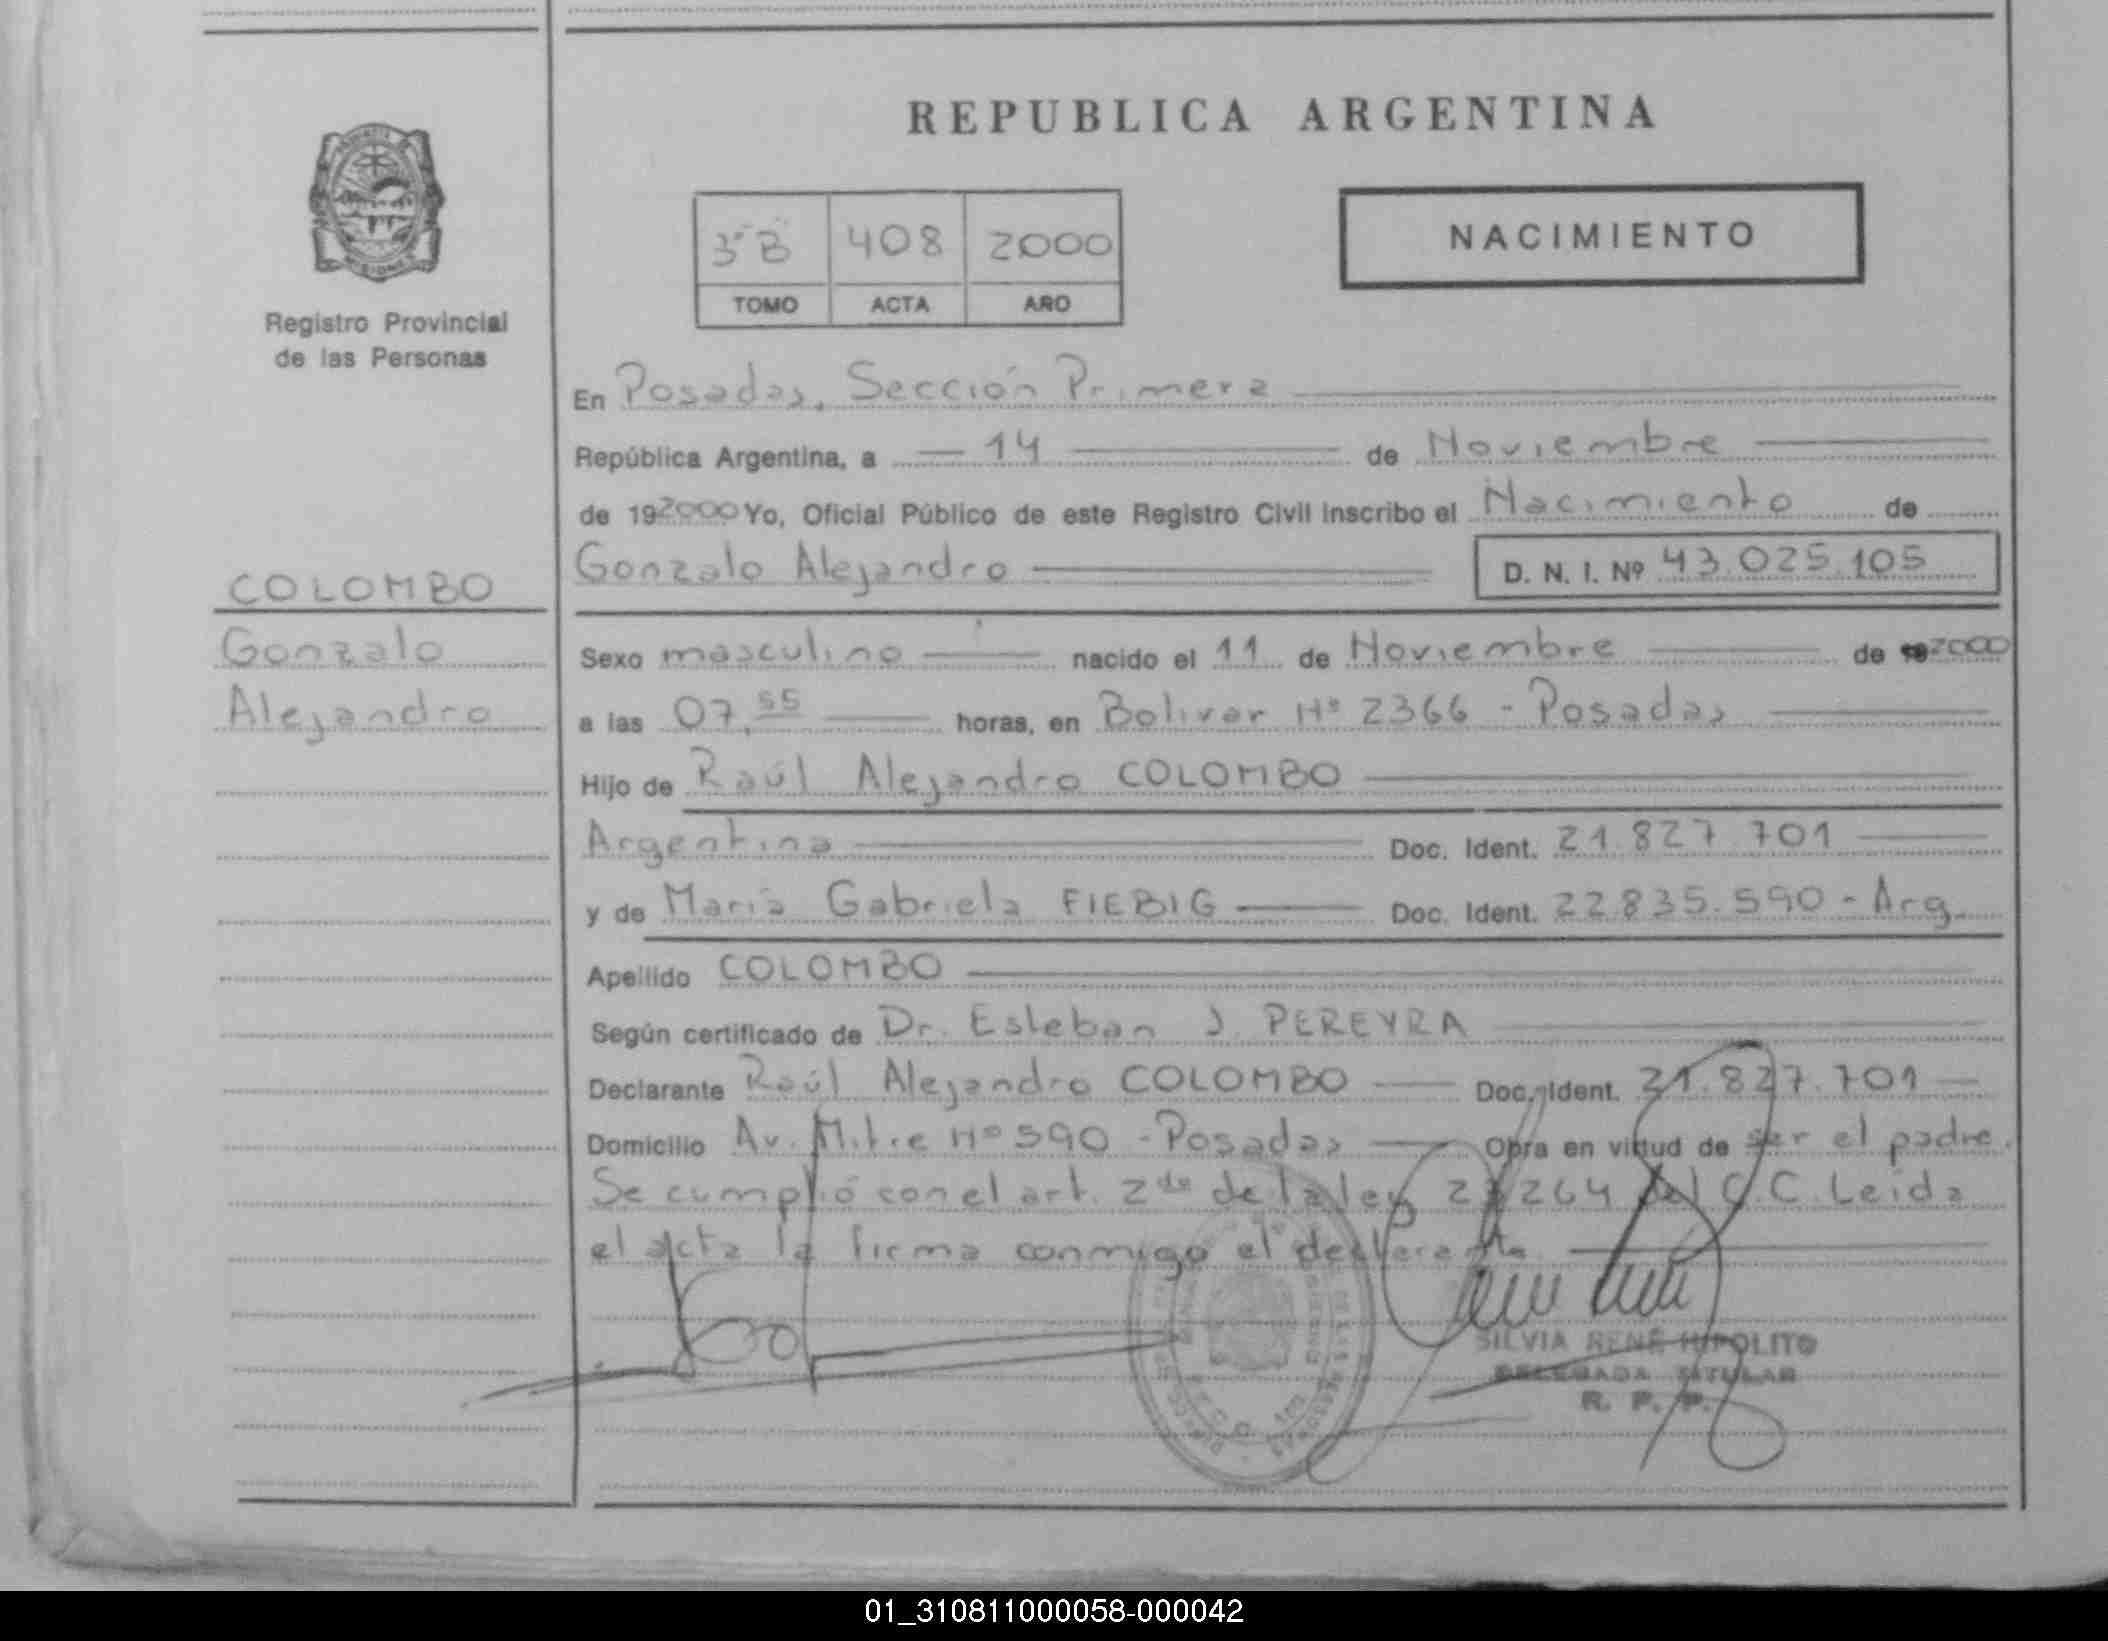 REPUBLICA ARGENTINA
3ºB 408 2000
TOMO ACTA AÑO
NACIMIENTO
MISIONES
Registro Provincial
de las Personas
COLOMBO
Gonzalo
Alejandro
En Posadas, Sección Primera
República Argentina, a 14 de Noviembre
de 192000 Yo, Oficial Público de este Registro Civil inscribo el Nacimiento de
Gonzalo Alejandro D. N. I. Nº 43.025.105
Sexo masculino nacido el 11 de Noviembre de 2000
a las 07,55 horas, en Bolivar Nº 2366 - Posadas
Hijo de Raúl Alejandro COLOMBO
Argentina Doc. Ident. 21.827.701
y de Maria Gabriela FIEBIG Doc. Ident. 22.835.590 - Arg.
Apellido COLOMBO
Según certificado de Dr. Esteban J. PEREYRA
Declarante Raúl Alejandro COLOMBO Doc. Ident. 21.827.701
Domicilio Av. Mitre Nº 590 - Posadas Obra en virtud de ser el padre.
Se cumplió con el art. 2do de la ley 23264 del C.C. Leida
el acta la firma conmigo el declarante
SILVIA RENÉ HIPOLITO
DELEGADA TITULAR
R. P. P.
01_310811000058-000042